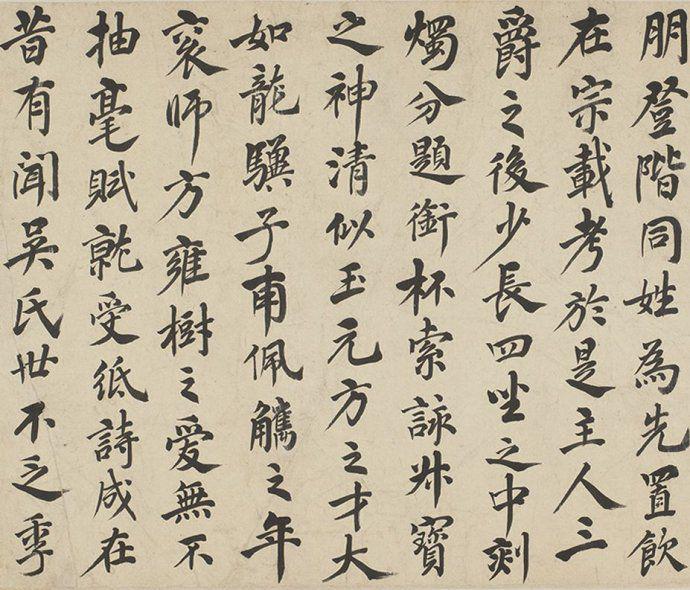 朋登階同姓為先置飲
在宗載考於是主人三
爵之後少長四坐之中刻
燭分題銜杯索詠叔寶
之神清似玉元方之才大
如龍驥子甫佩觿之年
袞師方雍樹之愛無不
抽毫賦就受紙詩成在
昔有聞吳氏世不乏季